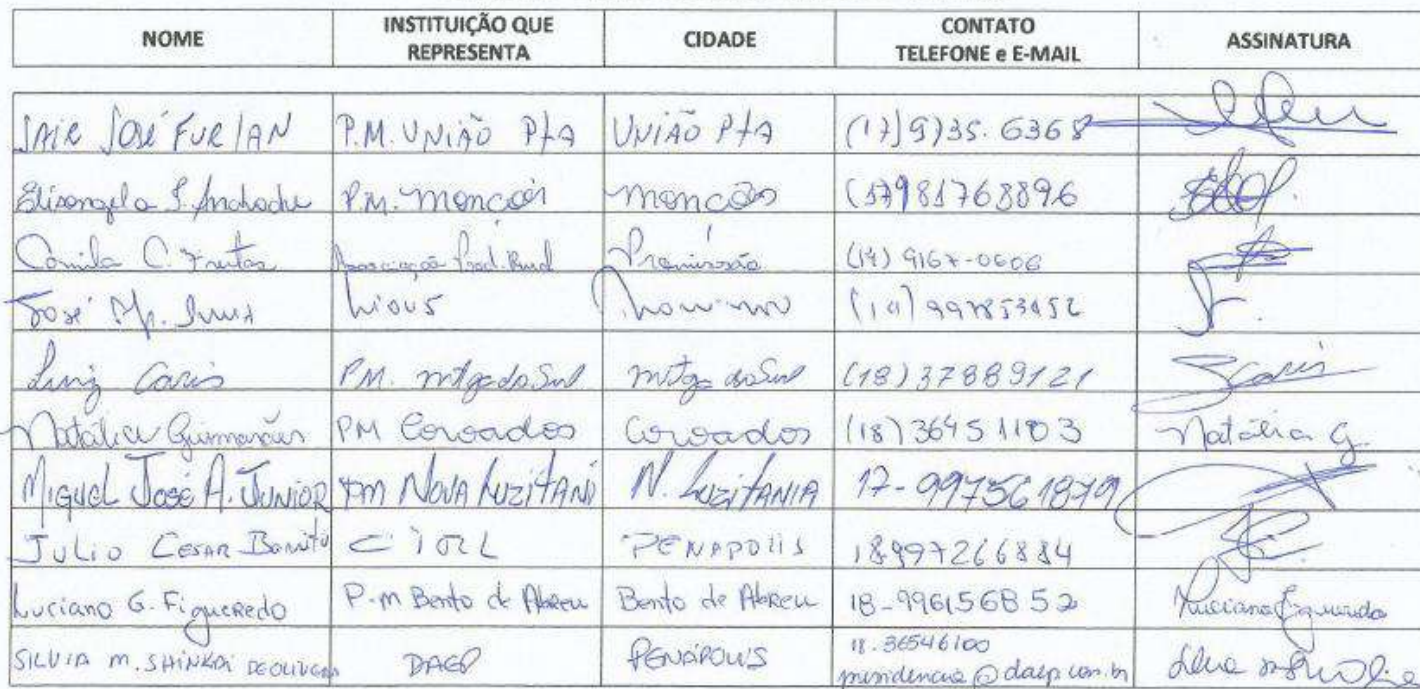 NOME INSTITUIÇÃO QUE REPRESENTA CIDADE CONTATO TELEFONE e E-MAIL ASSINATURA
JAIR JOSÉ FURLAN P.M. UNIÃO PTA UNIÃO PTA (17)9)35.6368
Elisangela S. Andrade P.M. Monções Monções (17)981768896
Camila C. Freitas Associação Prod. Rural Promissão (14) 9167-0606
José
Luiz Caris P.M. mtge do Sul mtge do Sul (18)37889121
Natália Guimarães PM Coroados Coroados (18)36451103 Natália G.
MIGUEL José A. JUNIOR PM NOVA LUZITANI N. LUZITANIA 17-997561879
JULIO CESAR PENAPOLIS 18997266884
Luciano G. Figueredo P.m Bento de Abreu Bento de Abreu 18-996156852 Luciano Figueredo
SILVIA M. SHINKAI DE OLIVEIRA DAEP PENÁPOLIS 18.36546100
presidencia@daep.com.br